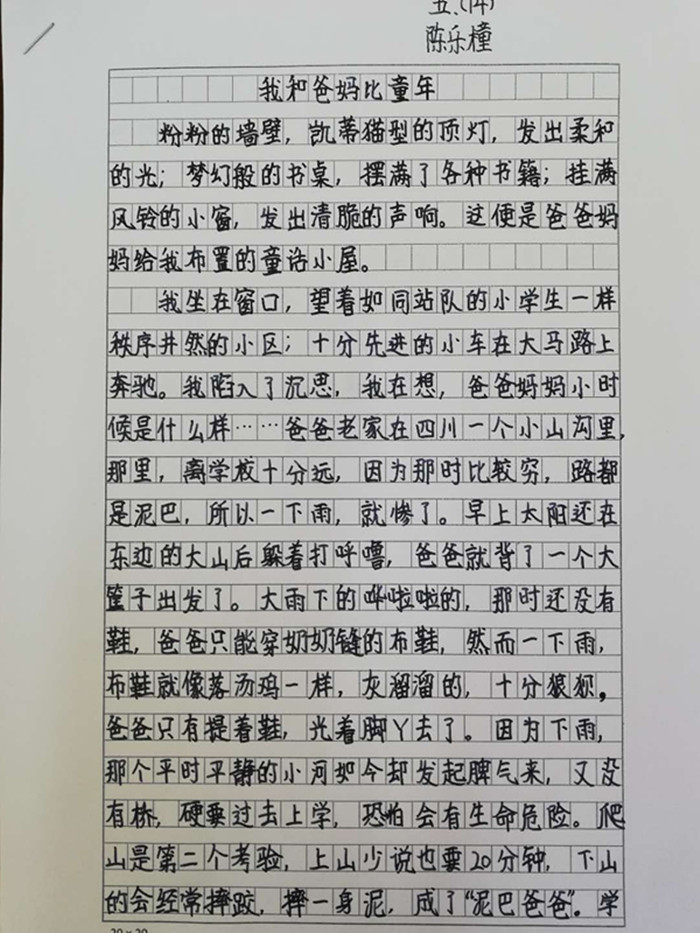 五、(14)
陈乐橦
我和爸妈比童年
粉粉的墙壁，凯蒂猫型的顶灯，发出柔和
的光；梦幻般的书桌，摆满了各种书籍；挂满
风铃的小窗，发出清脆的声响。这便是爸爸妈
妈给我布置的童话小屋。
我坐在窗口，望着如同站队的小学生一样
秩序井然的小区；十分先进的小车在大马路上
奔驰。我陷入了沉思，我在想，爸爸妈妈小时
候是什么样……爸爸老家在四川一个小山沟里，
那里，离学校十分远，因为那时比较穷，路都
是泥巴，所以一下雨，就惨了。早上太阳还在
东边的大山后躲着打呼噜，爸爸就背了一个大
筐子出发了。大雨下的哗啦啦的，那时还没有
鞋，爸爸只能穿奶奶缝的布鞋，然而一下雨，
布鞋就像落汤鸡一样，灰溜溜的，十分狼狈。
爸爸只有提着鞋，光着脚丫去了。因为下雨，
那个平时平静的小河如今却发起脾气来，又没
有桥，硬要过去上学，恐怕会有生命危险。爬
山是第二个考验，上山少说也要20分钟，下山
的会经常摔跤，摔一身泥，成了“泥巴爸爸”。学
20×20